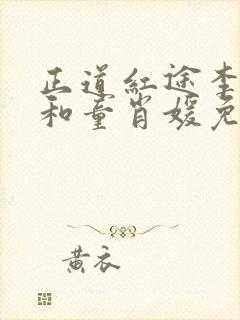 正道红途李
和童肖媛免
黄衣